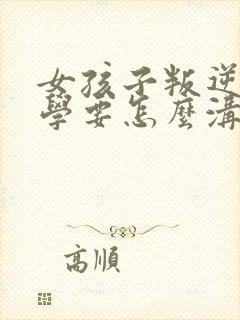 女孩子叛逆
學要怎麼溝
高順